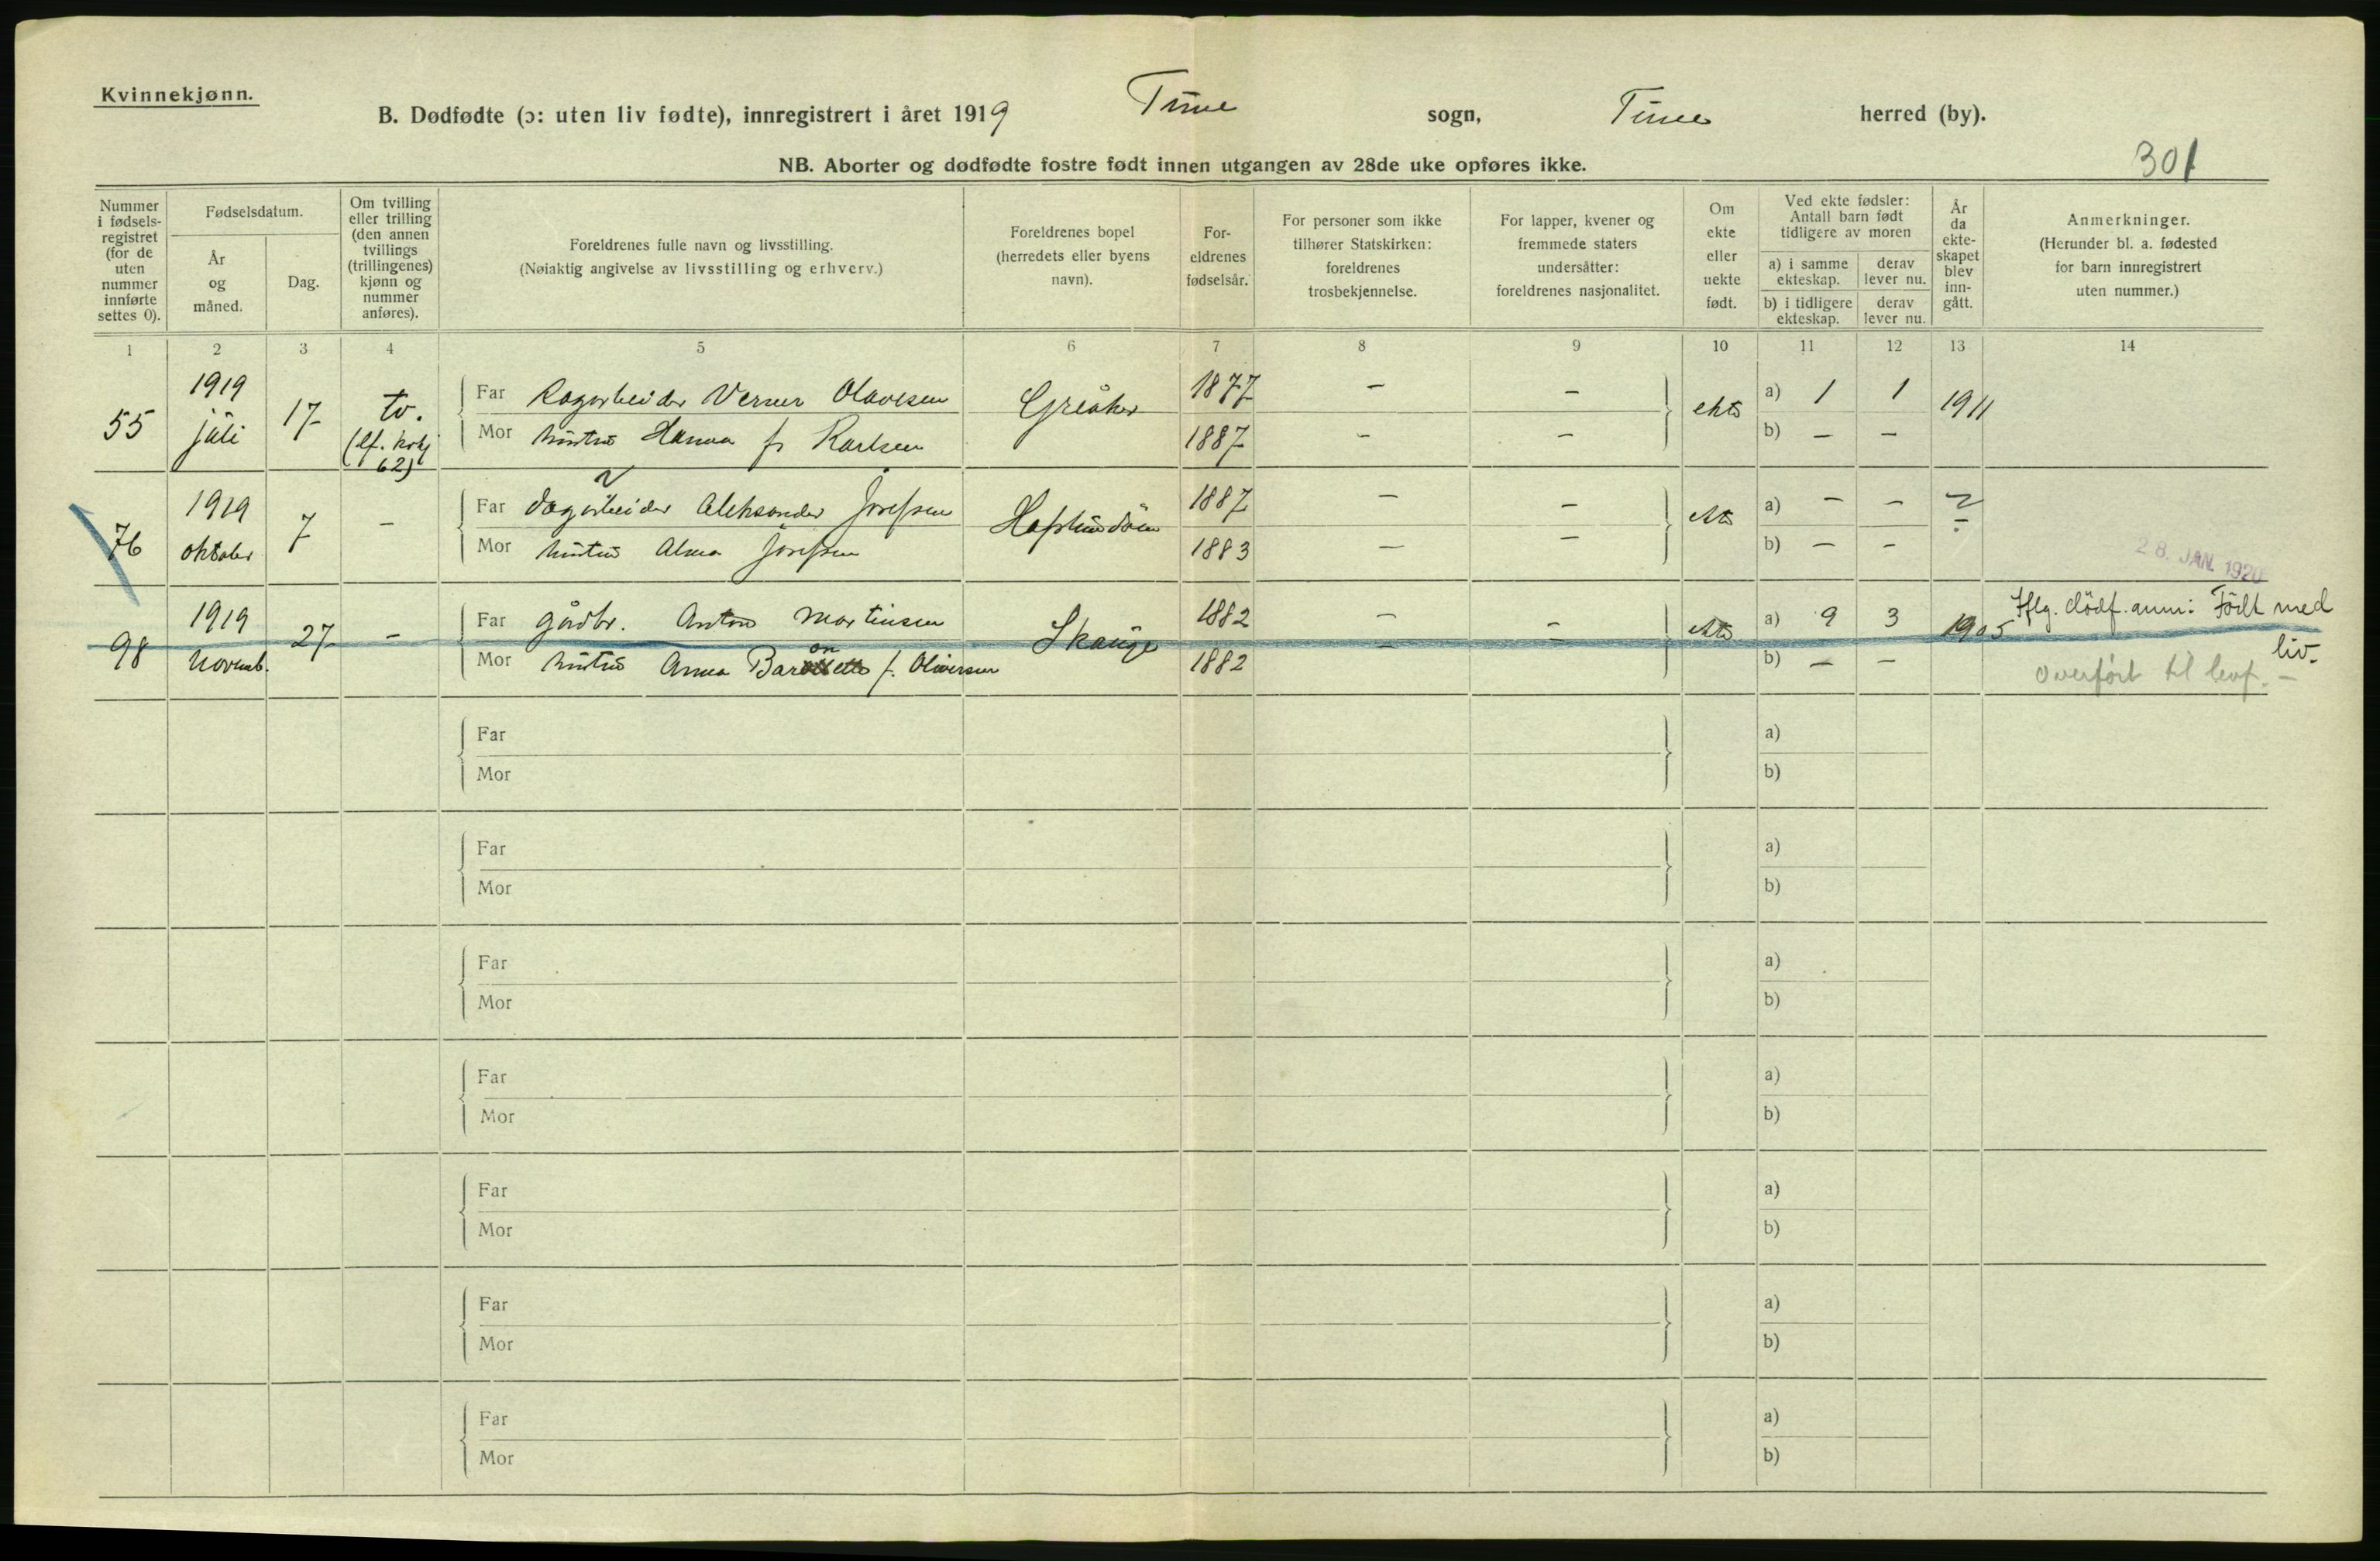 Kvinnekjønn.
B. Dødfødte (ɔ: uten liv fødte), innregistrert i året 1919 Tune sogn, Tune herred (by).
NB. Aborter og dødfødte fostre født innen utgangen av 28de uke opføres ikke.
301
Nummer
i fødsels-
registret
(for de
uten
nummer
innførte
settes 0).
Fødselsdatum.
År
og
måned.
Dag.
Om tvilling
eller trilling
(den annen
tvillings
(trillingenes)
kjønn og
nummer
anføres).
Foreldrenes fulle navn og livsstilling.
(Nøiaktig angivelse av livsstilling og erhverv.)
Foreldrenes bopel
(herredets eller byens
navn).
For-
eldrenes
fødselsår.
For personer som ikke
tilhører Statskirken:
foreldrenes
trosbekjennelse.
For lapper, kvener og
fremmede staters
undersåtter:
foreldrenes nasjonalitet.
Om
ekte
eller
uekte
født.
Ved ekte fødsler:
Antall barn født
tidligere av moren
a) i samme
ekteskap.
derav
lever nu.
b) i tidligere
ekteskap.
derav
lever nu.
År
da
ekte-
skapet
blev
inn-
gått.
Anmerkninger.
(Herunder bl. a. fødested
for barn innregistrert
uten nummer.)
1 2 3 4 5 6 7 8 9 10 11 12 13 14
55 1919 juli 17 tv.
62)
Far Verner Olavesen Greåker 1877 – – ekte a) 1 1 1911
Mor hustru Hanna f. Karlsen 1887 – – b) – –
76 1919 oktober 7 –
Far Dagarbeider Aleksander Josefsen Hafslundsøen 1887 – – ekte a) – – ?
Mor hustru Alma Josefsen 1883 – – b) – –
28. JAN. 1920
98 1919 novemb. 27 –
Far gårdbr. Anton Martinsen Skauge 1882 – – ekte a) 9 3 1905
Mor hustru Anna f. Oliversen 1882 – – b) – –
Iflg. dödf. anm: Födt med
liv.
Overført til levf. –
Far a)
Mor b)
Far a)
Mor b)
Far a)
Mor b)
Far a)
Mor b)
Far a)
Mor b)
Far a)
Mor b)
Far a)
Mor b)